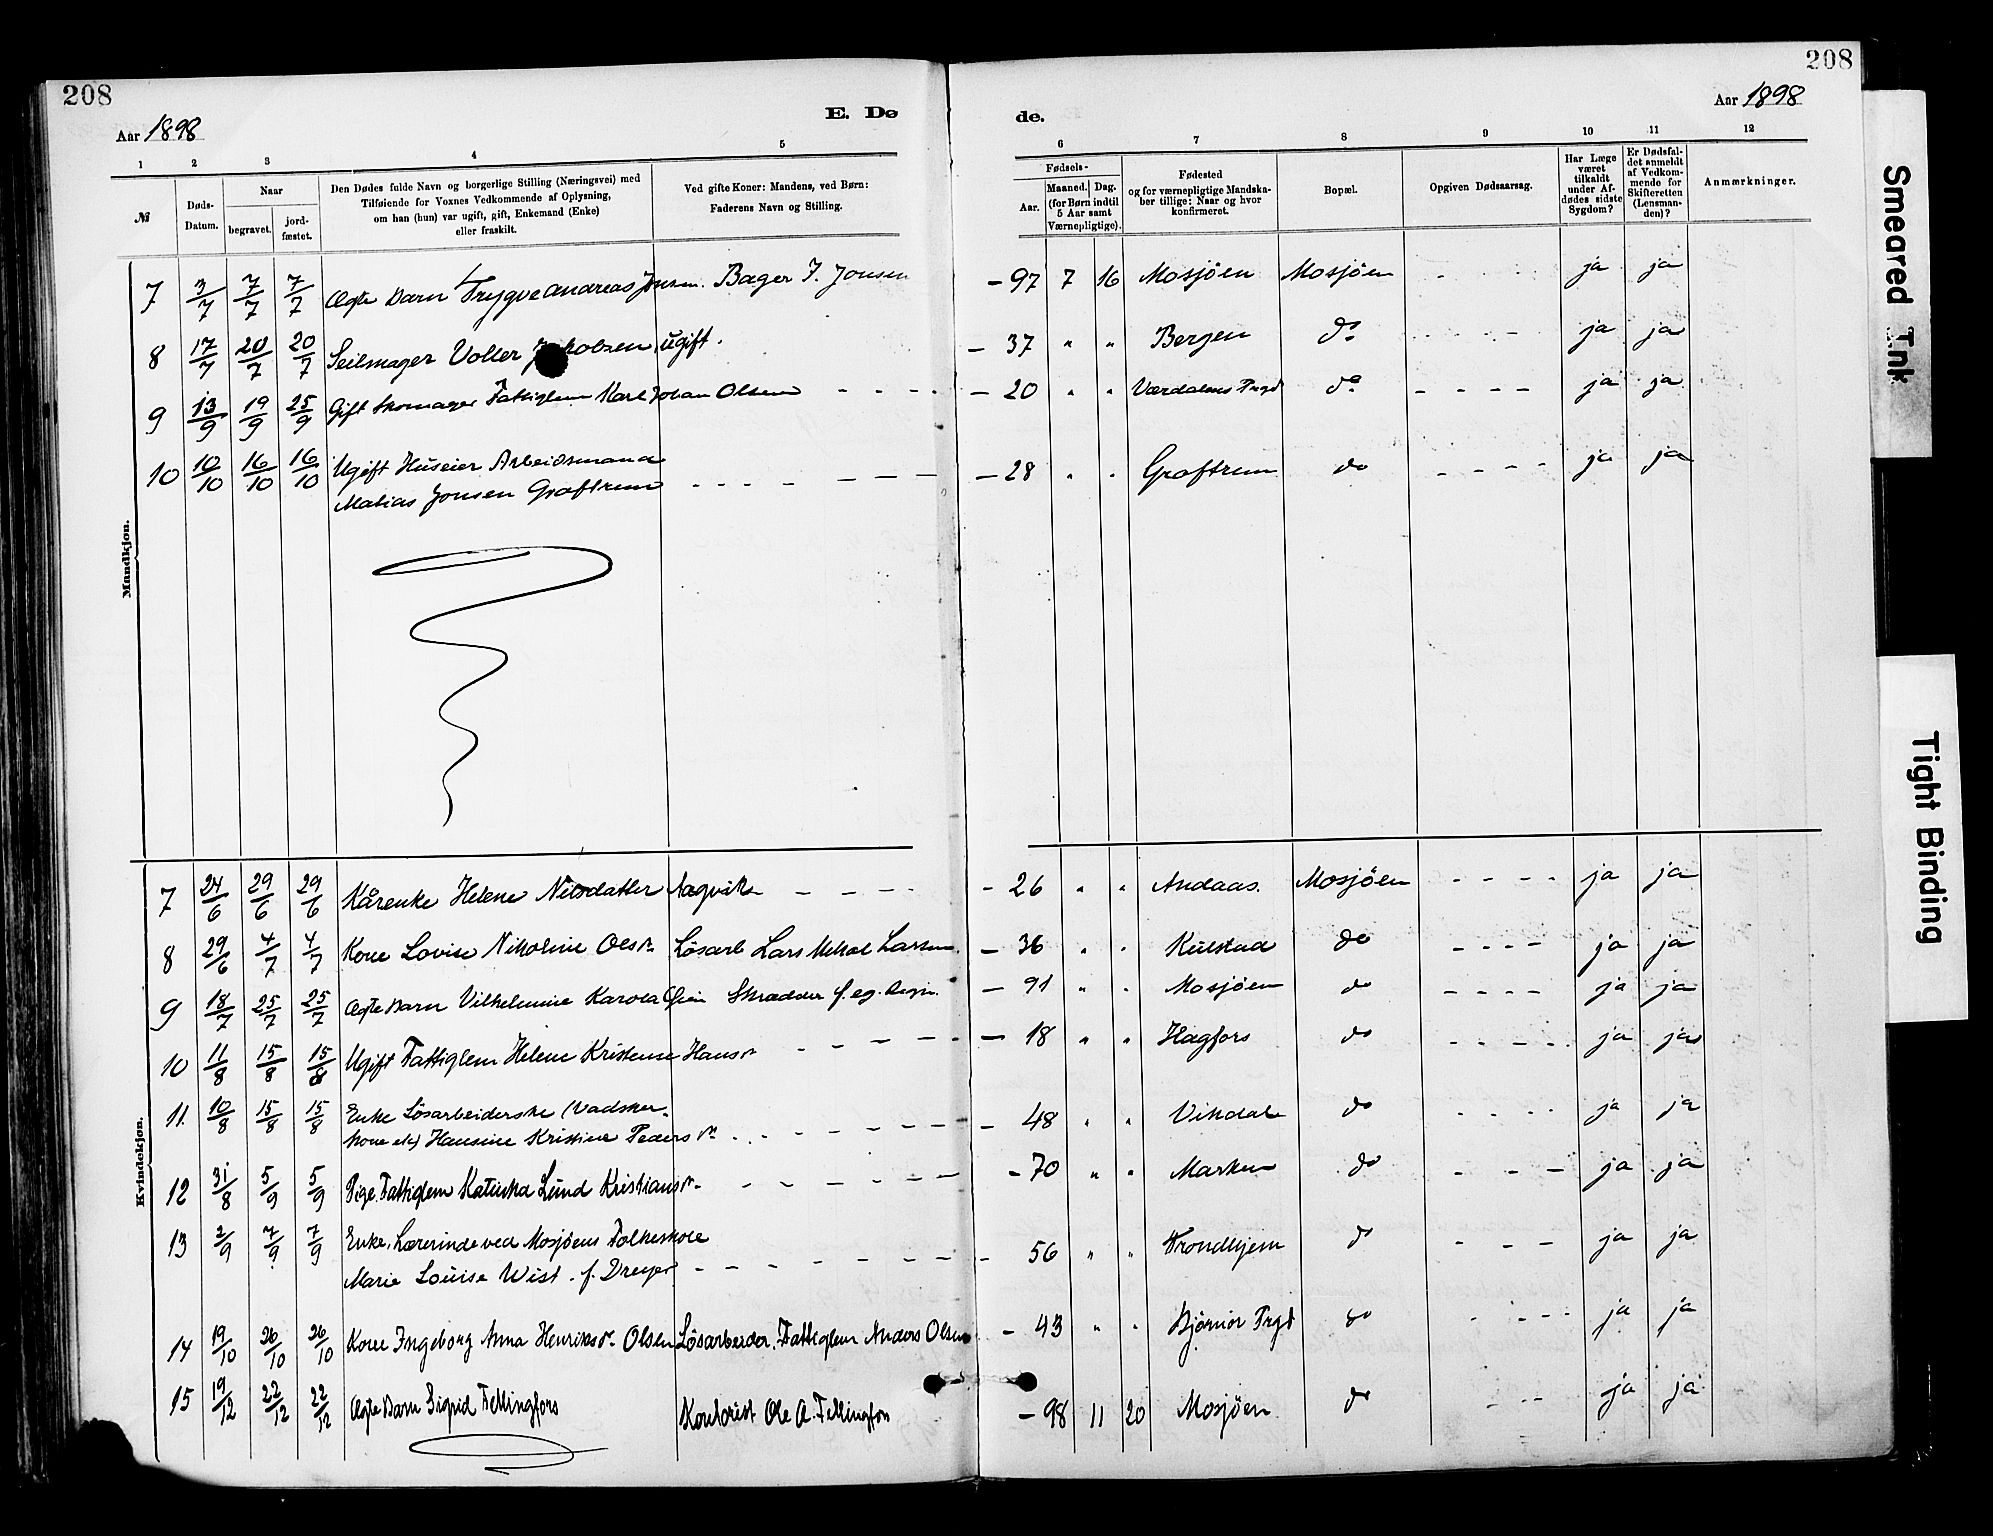 208
208
Aar 1898
E. Dø
de.
Aar 1898
1 2 3 4 5 6 7 8 9 10 11 12
№
Døds-
Datum.
Naar
begravet.
jord-
fæstet.
Den Dødes fulde Navn og borgerlige Stilling (Næringsvei) med
Tilføiende for Voxnes Vedkommende af Oplysning,
om han (hun) var ugift, gift, Enkemand (Enke)
eller fraskilt.
Ved gifte Koner: Mandens, ved Børn:
Faderens Navn og Stilling.
Fødsels-
Aar.
Maaned. Dag.
(for Børn indtil
5 Aar samt
Værnepligtige).
Fødested
og for værnepligtige Mandska-
ber tillige: Naar og hvor
konfirmeret.
Bopæl.
Opgiven Dødsaarsag.
Har Læge
været
tilkaldt
under Af-
dødes sidste
Sygdom?
Er Dødsfal-
det anmeldt
af Vedkom-
mende for
Skifteretten
(Lensman-
den)?
Anmærkninger.
Mandkjøn.
7 3/7 7/7 7/7 Ægte Barn Trygve Andreas Jonsen. Bager J. Jonsen - 97 7 16 Mosjöen Mosjöen ja ja
8 17/7 20/7 20/7 Seilmager Volter ugift. - 37 " " Bergen do ja ja
9 13/9 19/9 25/9 Gift Skomager Fattiglem Karl Johan Olsen - 20 " " Værdalens Prgd do ja ja
10 10/10 16/10 16/10 Ugift Huseier Arbeidsmand
Matias Jonsen Groftrem - 28 " " Groftrem do ja ja
Kvindekjøn.
7 24/6 29/6 29/6 Kårenke Helene Nilsdatter Aagvik - 26 " " Andaas. Mosjöen ja ja
8 29/6 4/7 4/7 Kone Lovise Nikoline Olsdr. Lösarb Lars Mikal Larsen. - 36 " " Kulstad do ja ja
9 18/7 25/7 25/7 Ægte Barn Vilhelmine Karola Skrædder - 91 " " Mosjöen do ja ja
10 11/8 15/8 15/8 Ugift Fattiglem Helene Kristense Hansdr - 18 " " Hagfors do ja ja
11. 10/8 15/8 15/8 Enke Lösarbeiderske (Vadsker-
kone etc) Hansine Kristine Pedersdr. - 48 " " Vikdal do ja ja
12 31/8 5/9 5/9 Pige Fattiglem Katinka Lund Kristiansdr. - 70 " " Marken do ja ja
13 2/9 7/9 7/9 Enke, Lærerinde ved Mosjöens Folkeskole
Marie Louise Wist. f. Dreyer - 56 " " Trondhjem do ja ja
14 19/10 26/10 26/10 Kone Ingeborg Anna Henriksdr. Olsen Lösarbeider, Fattiglem Anders Olsen - 43 " " Björnör Prgd do ja ja
15 19/12 22/12 22/12 Ægte Barn Sigrid Fellingfors Kontorist Ole A. Fellingfors - 98 11 20 Mosjöen do ja ja
Smeared Ink
Tight Binding